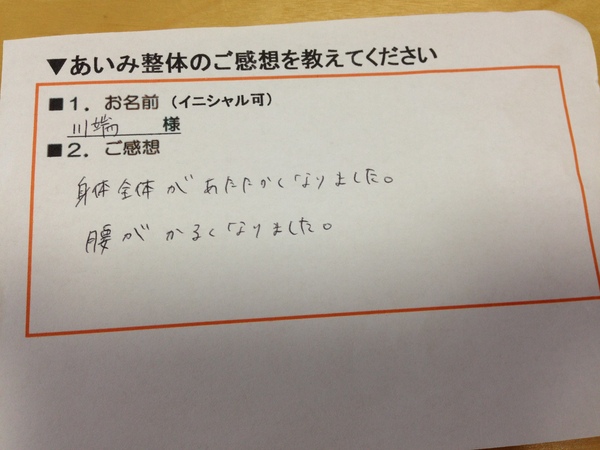 ▼あいみ整体のご感想を教えてください
■1．お名前（イニシャル可）
川端 様
■2．ご感想
身体全体があたたかくなりました。
腰がかるくなりました。